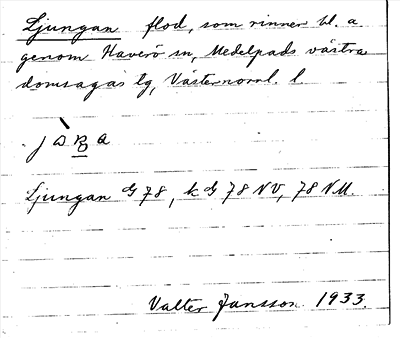 Ljungan flod, som rinner bl. a
genom Haverö sn, Medelpads västra
domsagas lg, Västernorrl. l.
Ljungan G 78, k G 78 NV, 78 NM.
Valter Jansson 1933.